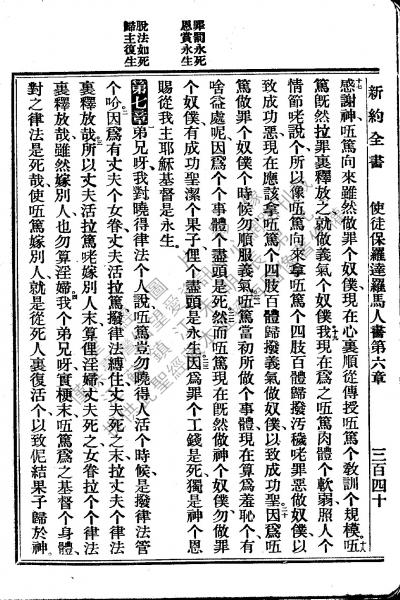 新約全書　使徒保羅達羅馬人書第六章　三百四十
罪罰永死
恩賞永生
脫法如死
歸主復生
感謝神㑚篤向來雖然做罪个奴僕現在心裏順從傳授㑚篤个敎訓个規模㑚
篤旣然拉罪裏釋放之就做義氣个奴僕我現在爲之㑚篤肉體个軟弱照人个
情節咾說个所以像㑚篤向來拿㑚篤个四肢百體歸撥汚穢咾罪惡做奴僕以
致成功惡現在應該拿㑚篤个四肢百體歸撥義氣做奴僕以致成功聖因爲㑚
篤做罪个奴僕个時候勿順服義氣㑚篤當初所做个事體現在算爲羞恥个有
啥益處呢因爲个个事體个盡頭是死然而㑚篤現在旣然做神个奴僕勿做罪
个奴僕有成功聖潔个果子俚个盡頭是永生因爲罪个工錢是死獨是神个恩
賜從我主耶穌基督是永生
第七章弟兄呀我對曉得律法个人說㑚篤豈勿曉得人活个時候是撥律法管
个吤因爲有丈夫个女眷丈夫活拉篤撥律法縛住丈夫死之末拉丈夫个律法
裏釋放哉所以丈夫活拉篤咾嫁別人末算俚淫婦丈夫死之女眷拉个个律法
裏釋放哉雖然嫁別人也勿算淫婦我个弟兄呀實梗末㑚篤爲之基督个身體
對之律法是死哉使㑚篤嫁別人就是從死人裏復活个以致伲結果子歸於神